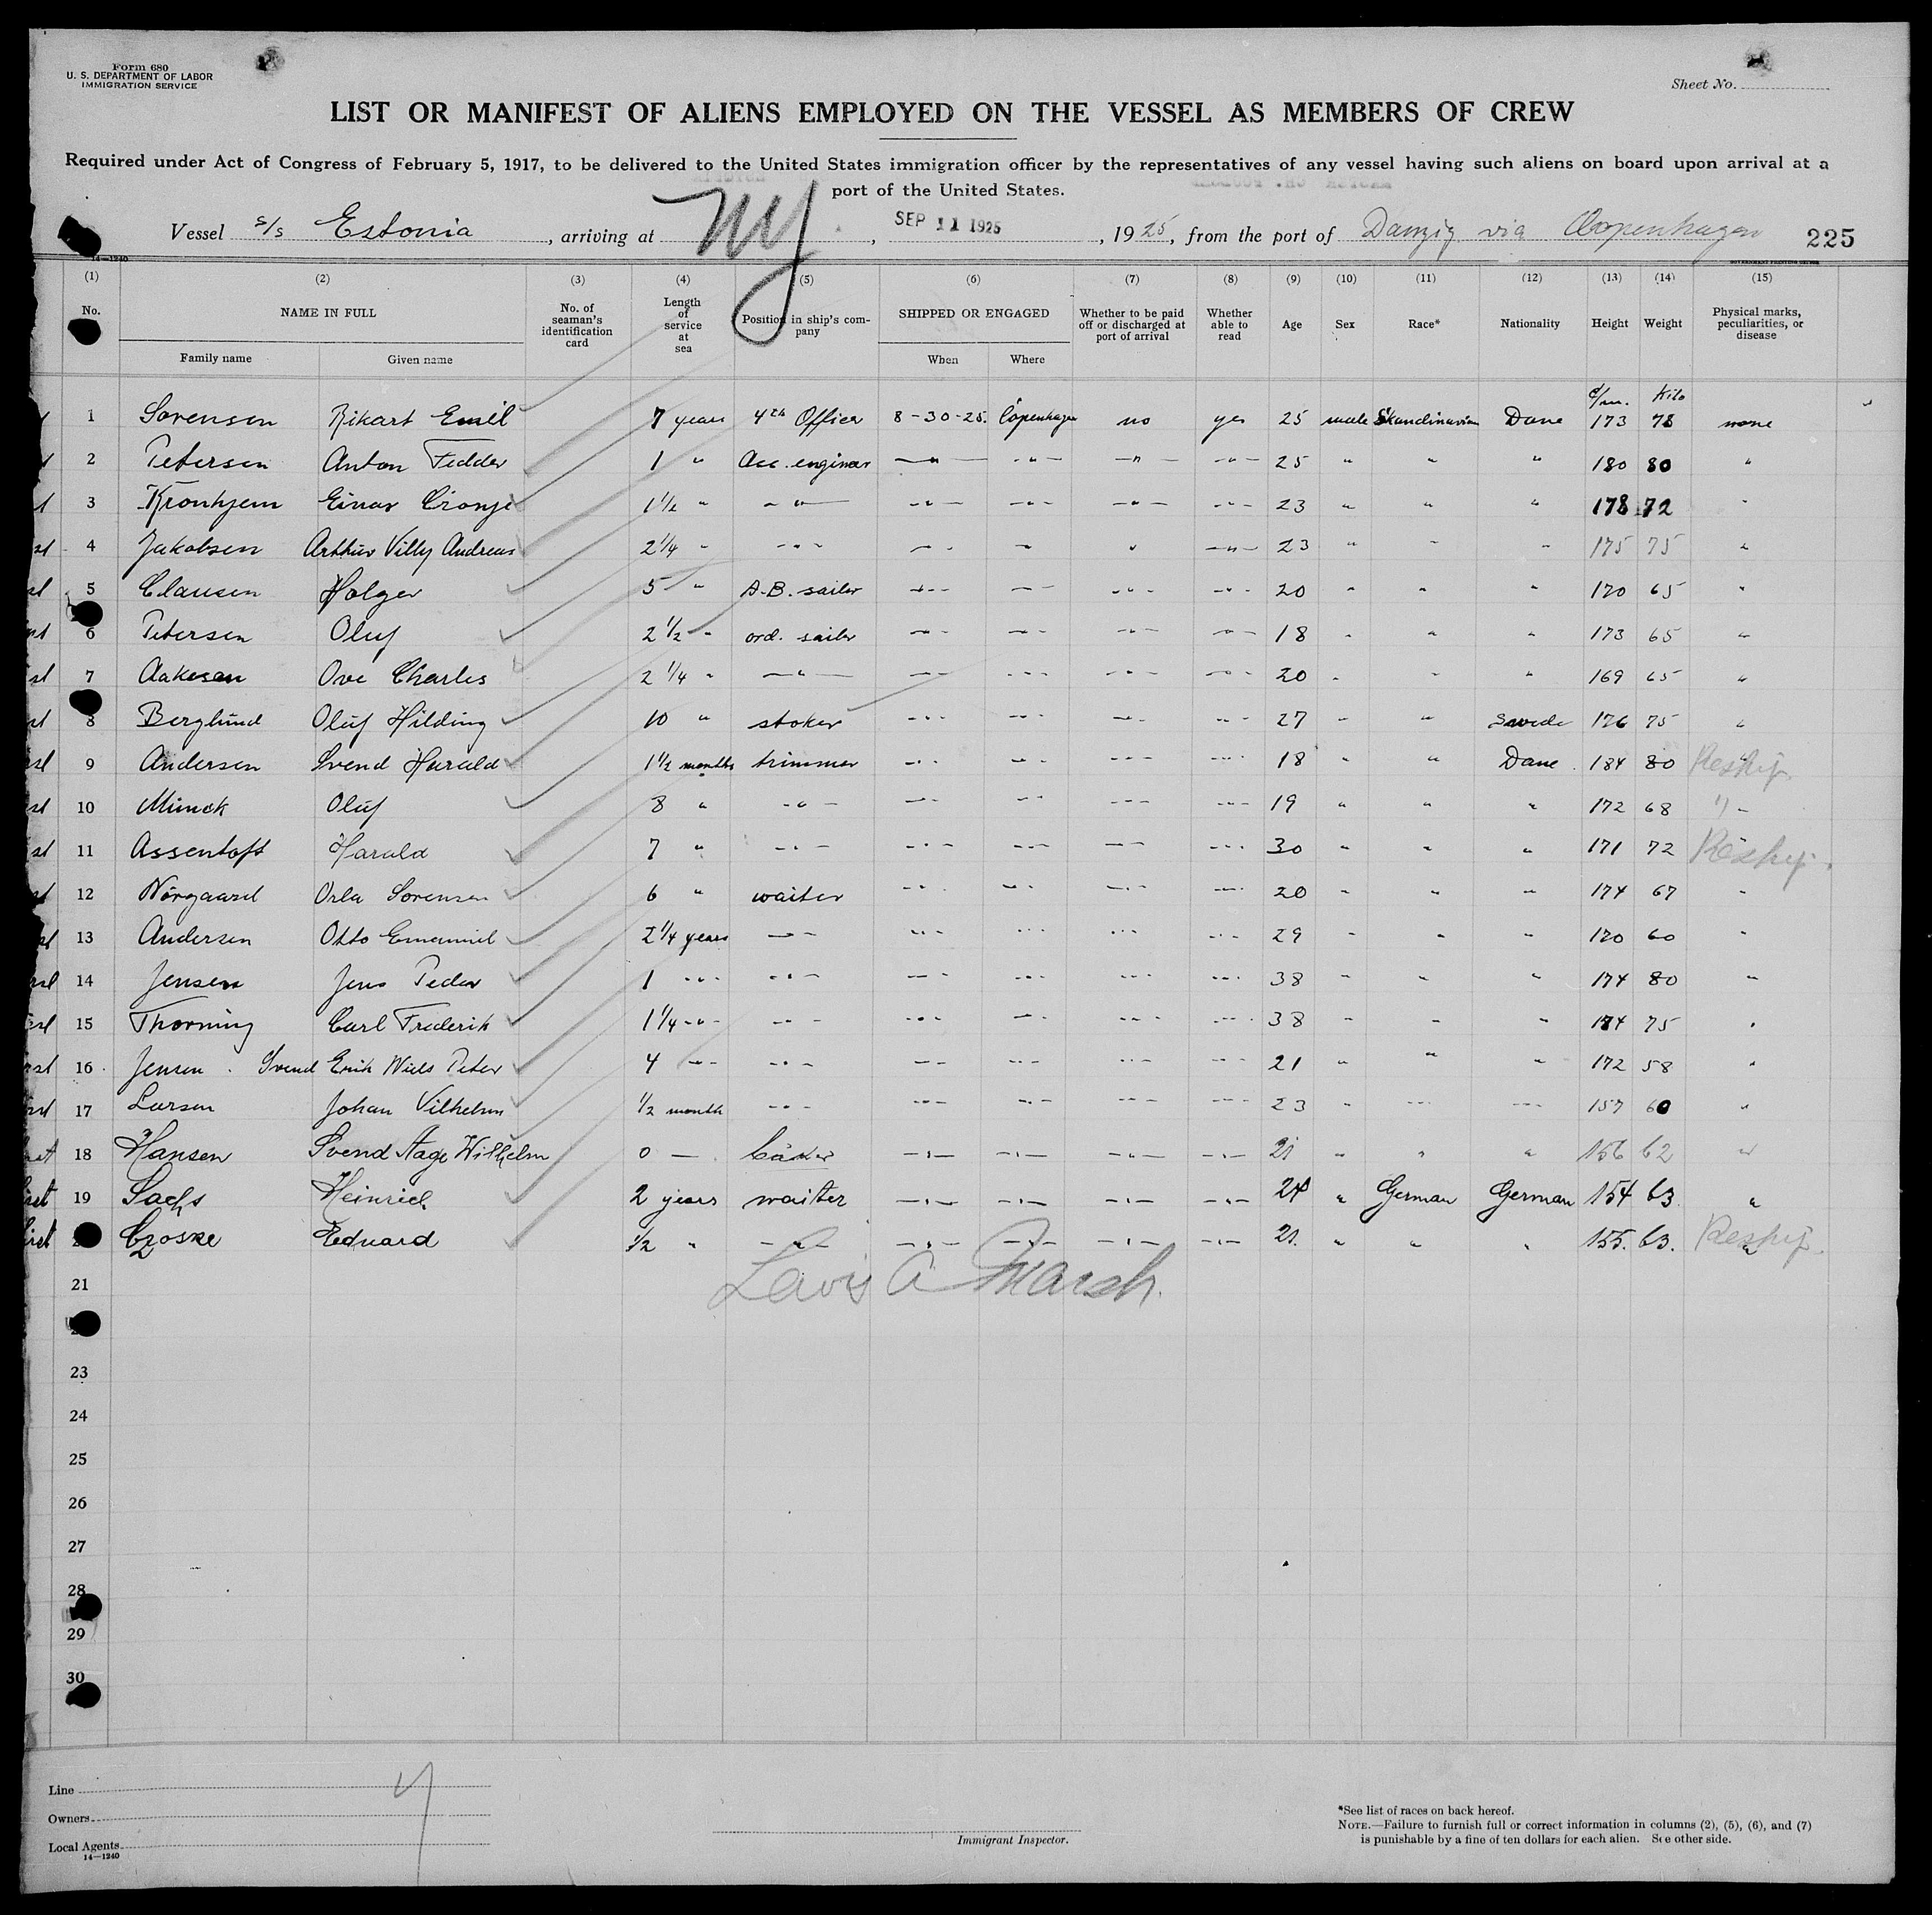 Form 680
U. S. DEPARTMENT OF LABOR
IMMIGRATION SERVICE
Sheet No.
LIST OR MANIFEST OF ALIENS EMPLOYED ON THE VESSEL AS MEMBERS OF CREW
Required under Act of Congress of February 5, 1917, to be delivered to the United States immigration officer by the representatives of any vessel having such aliens on board upon arrival at a
port of the United States.
Vessel s/s Estonia, arriving at NY, SEP 11 1925, 1925, from the port of Danzig via Copenhagen 225
14—1240
(1) (2) (3) (4) (5) (6) (7) (8) (9) (10) (11) (12) (13) (14) (15)
No. NAME IN FULL Family name Given name No. of seaman's identification card Length of service at sea Position in ship's company SHIPPED OR ENGAGED When Where Whether to be paid off or discharged at port of arrival Whether able to read Age Sex Race* Nationality Height Weight Physical marks, peculiarities, or disease
c/m. Kilo
1 Sorensen Rikart Emil 7 years 4th Officer 8-30-25. Copenhagen no yes 25 male Skandinavian Dane 173 78 none
2 Petersen Anton Fedder 1 " Ass. engineer —"— —"— —"— —"— 25 " " " 180 80 "
3 Kronhjem Einar Cronje 1½ " —"— —"— —"— —"— —"— 23 " " " 178 72 "
4 Jakobsen Arthur Villy Andreas 2¼ " —"— —"— " " —"— 23 " " " 175 75 "
5 Clausen Holger 5 " A.B. sailor —"— —"— —"— —"— 20 " " " 170 65 "
6 Petersen Oluf 2½ " ord. sailor —"— —"— —"— —"— 18 " " " 173 65 "
7 Aakesen Ove Charles 2¼ " —"— —"— —"— —"— —"— 20 " " " 169 65 "
8 Berglund Oluf Hilding 10 " stoker —"— —"— —"— —"— 27 " " Swede 176 75 "
9 Andersen Svend Harald 1½ months trimmer —"— —"— —"— —"— 18 " " Dane 184 80 " Reship.
10 Munck Oluf 8 " —"— —"— —"— —"— —"— 19 " " " 172 68 "
11 Assentoft Harald 7 " —"— —"— —"— —"— —"— 30 " " " 171 72 Reship.
12 Nörgaard Orla Sorensen 6 " waiter —"— —"— —"— —"— 20 " " " 174 67 "
13 Andersen Otto Emanuel 2¼ years —"— —"— —"— —"— —"— 29 " " " 170 60 "
14 Jensen Jens Peder 1 —"— —"— —"— —"— —"— —"— 38 " " " 174 80 "
15 Thorning Carl Frederik 1¼ —"— —"— —"— —"— —"— —"— 38 " " " 174 75 "
16 Jensen Svend Erik Niels Peter 4 —"— —"— —"— —"— —"— —"— 21 " " " 172 58 "
17 Larsen Johan Vilhelm ½ month —"— —"— —"— —"— —"— 23 " " " 157 60 "
18 Hansen Svend Aage Wilhelm 0 — baker —"— —"— —"— —"— 21 " " " 156 62 "
19 Sachs Heinrich 2 years waiter —"— —"— —"— —"— 24 " German German 154 63 "
Czoske Eduard ½ " —"— —"— —"— —"— —"— 21. " " " 155. 63. " Reship.
21
23
24
25
26
27
28
29
30
Line
Owners
Local Agents
14—1240
Immigrant Inspector.
*See list of races on back hereof.
NOTE.—Failure to furnish full or correct information in columns (2), (5), (6), and (7)
is punishable by a fine of ten dollars for each alien. See other side.